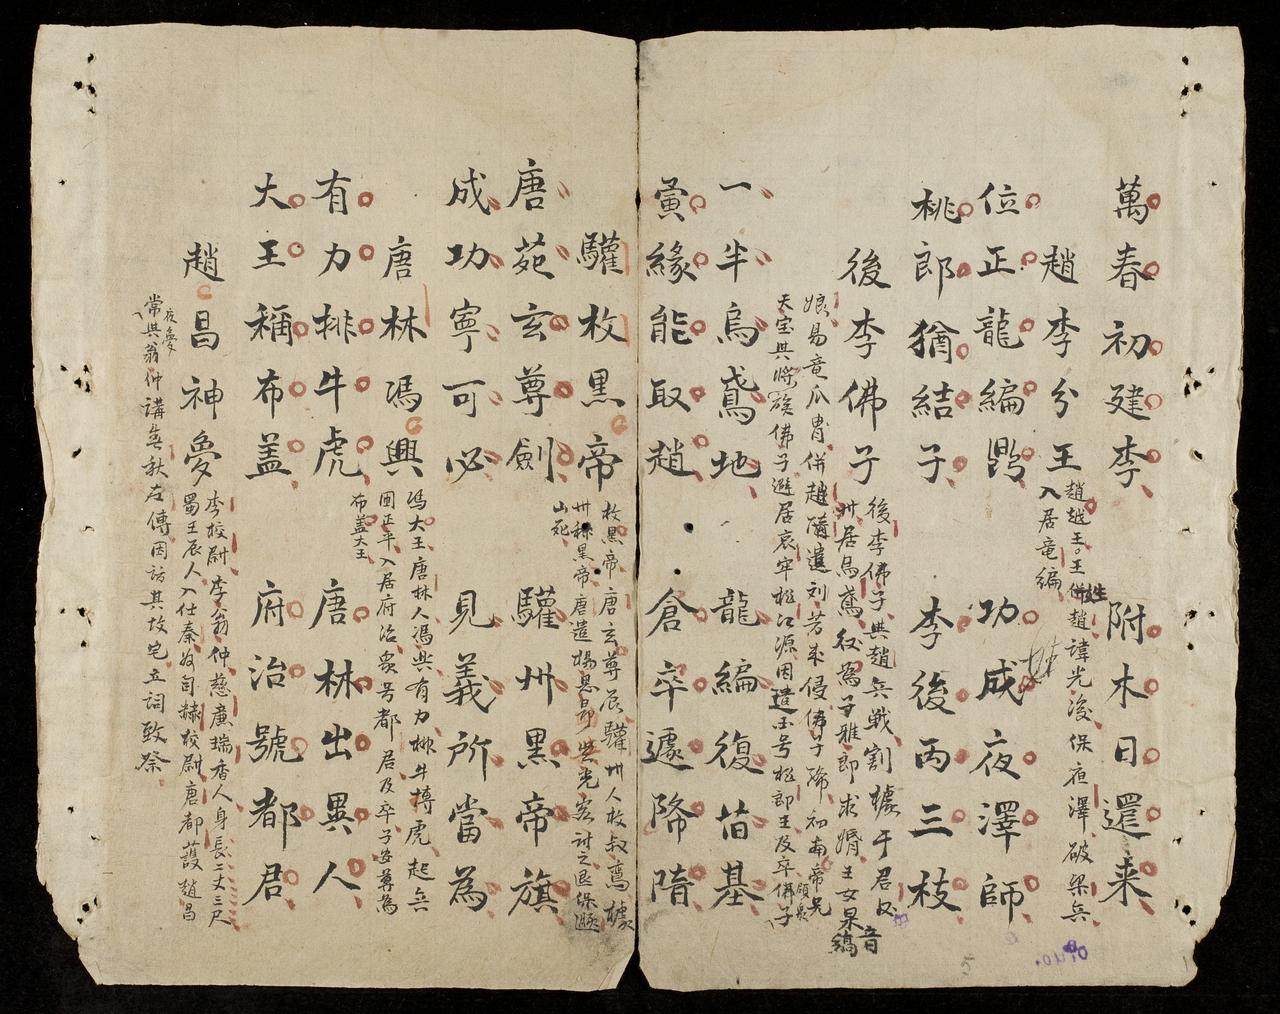 萬春初建李　附木日還来
趙李分王
趙越王。王姓趙諱光後保夜澤破梁兵
入居竜編併
位正龍編鼎　功成夜澤師
桃郎猶結子　李後丙三枝
後李佛子
後李佛子與趙兵戦割據于君臣
州居烏鳶 為子雅郎求婚王女杲
音縞
娘易竜爪胄併趙隋遣刘芳来侵佛子降初南帝兄
天宝與將族佛子避居哀牢桃江源因建国号桃郎王及卒佛子
領衆
一半烏鳶地　龍編復苗基
夤緣能取趙　倉卒遽降隋
驩枚黒帝
枚黒帝唐玄尊辰驩州人枚叔鸞據
州称黒帝唐遣楊思勗與光客討之退保
山死
唐苑玄尊劍　驩州黒帝旗
成功寧可必　見義所當為
唐林馮興
馮大王唐林人馮興有力排牛摶虎起兵
囲正平入居府治衆号都君及卒子安尊為
布盖大王
有力排牛虎　唐林出異人
大王稱布盖　府治號都君
趙昌神夢
李校尉李翁仲慈廣瑞香人身長二丈三尺
蜀王辰人入仕秦為司隸校尉唐都護趙昌
夜夢
常與翁仲講春秋左傳因訪其故宅立祠致祭
5